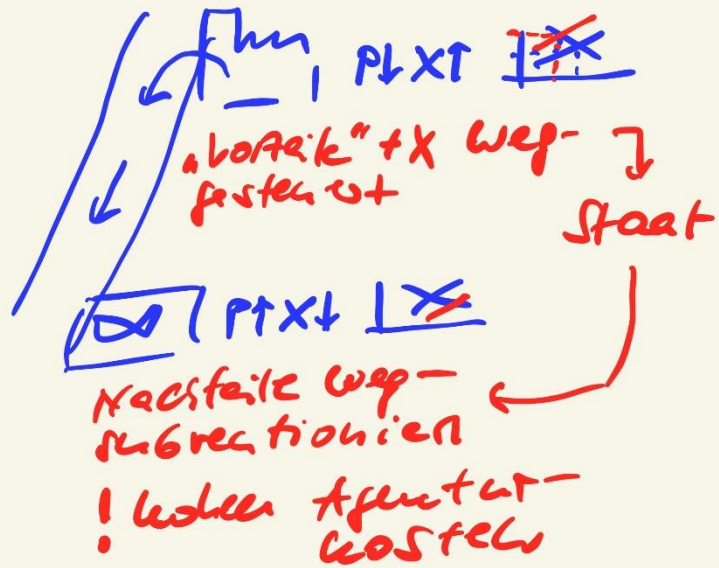 P↓ X↑
„Vorteile“ + X weg-
gesteuert
Staat
P↑ X↓
Nachteile weg-
subventioniert
! hohen Agentur-
kosten